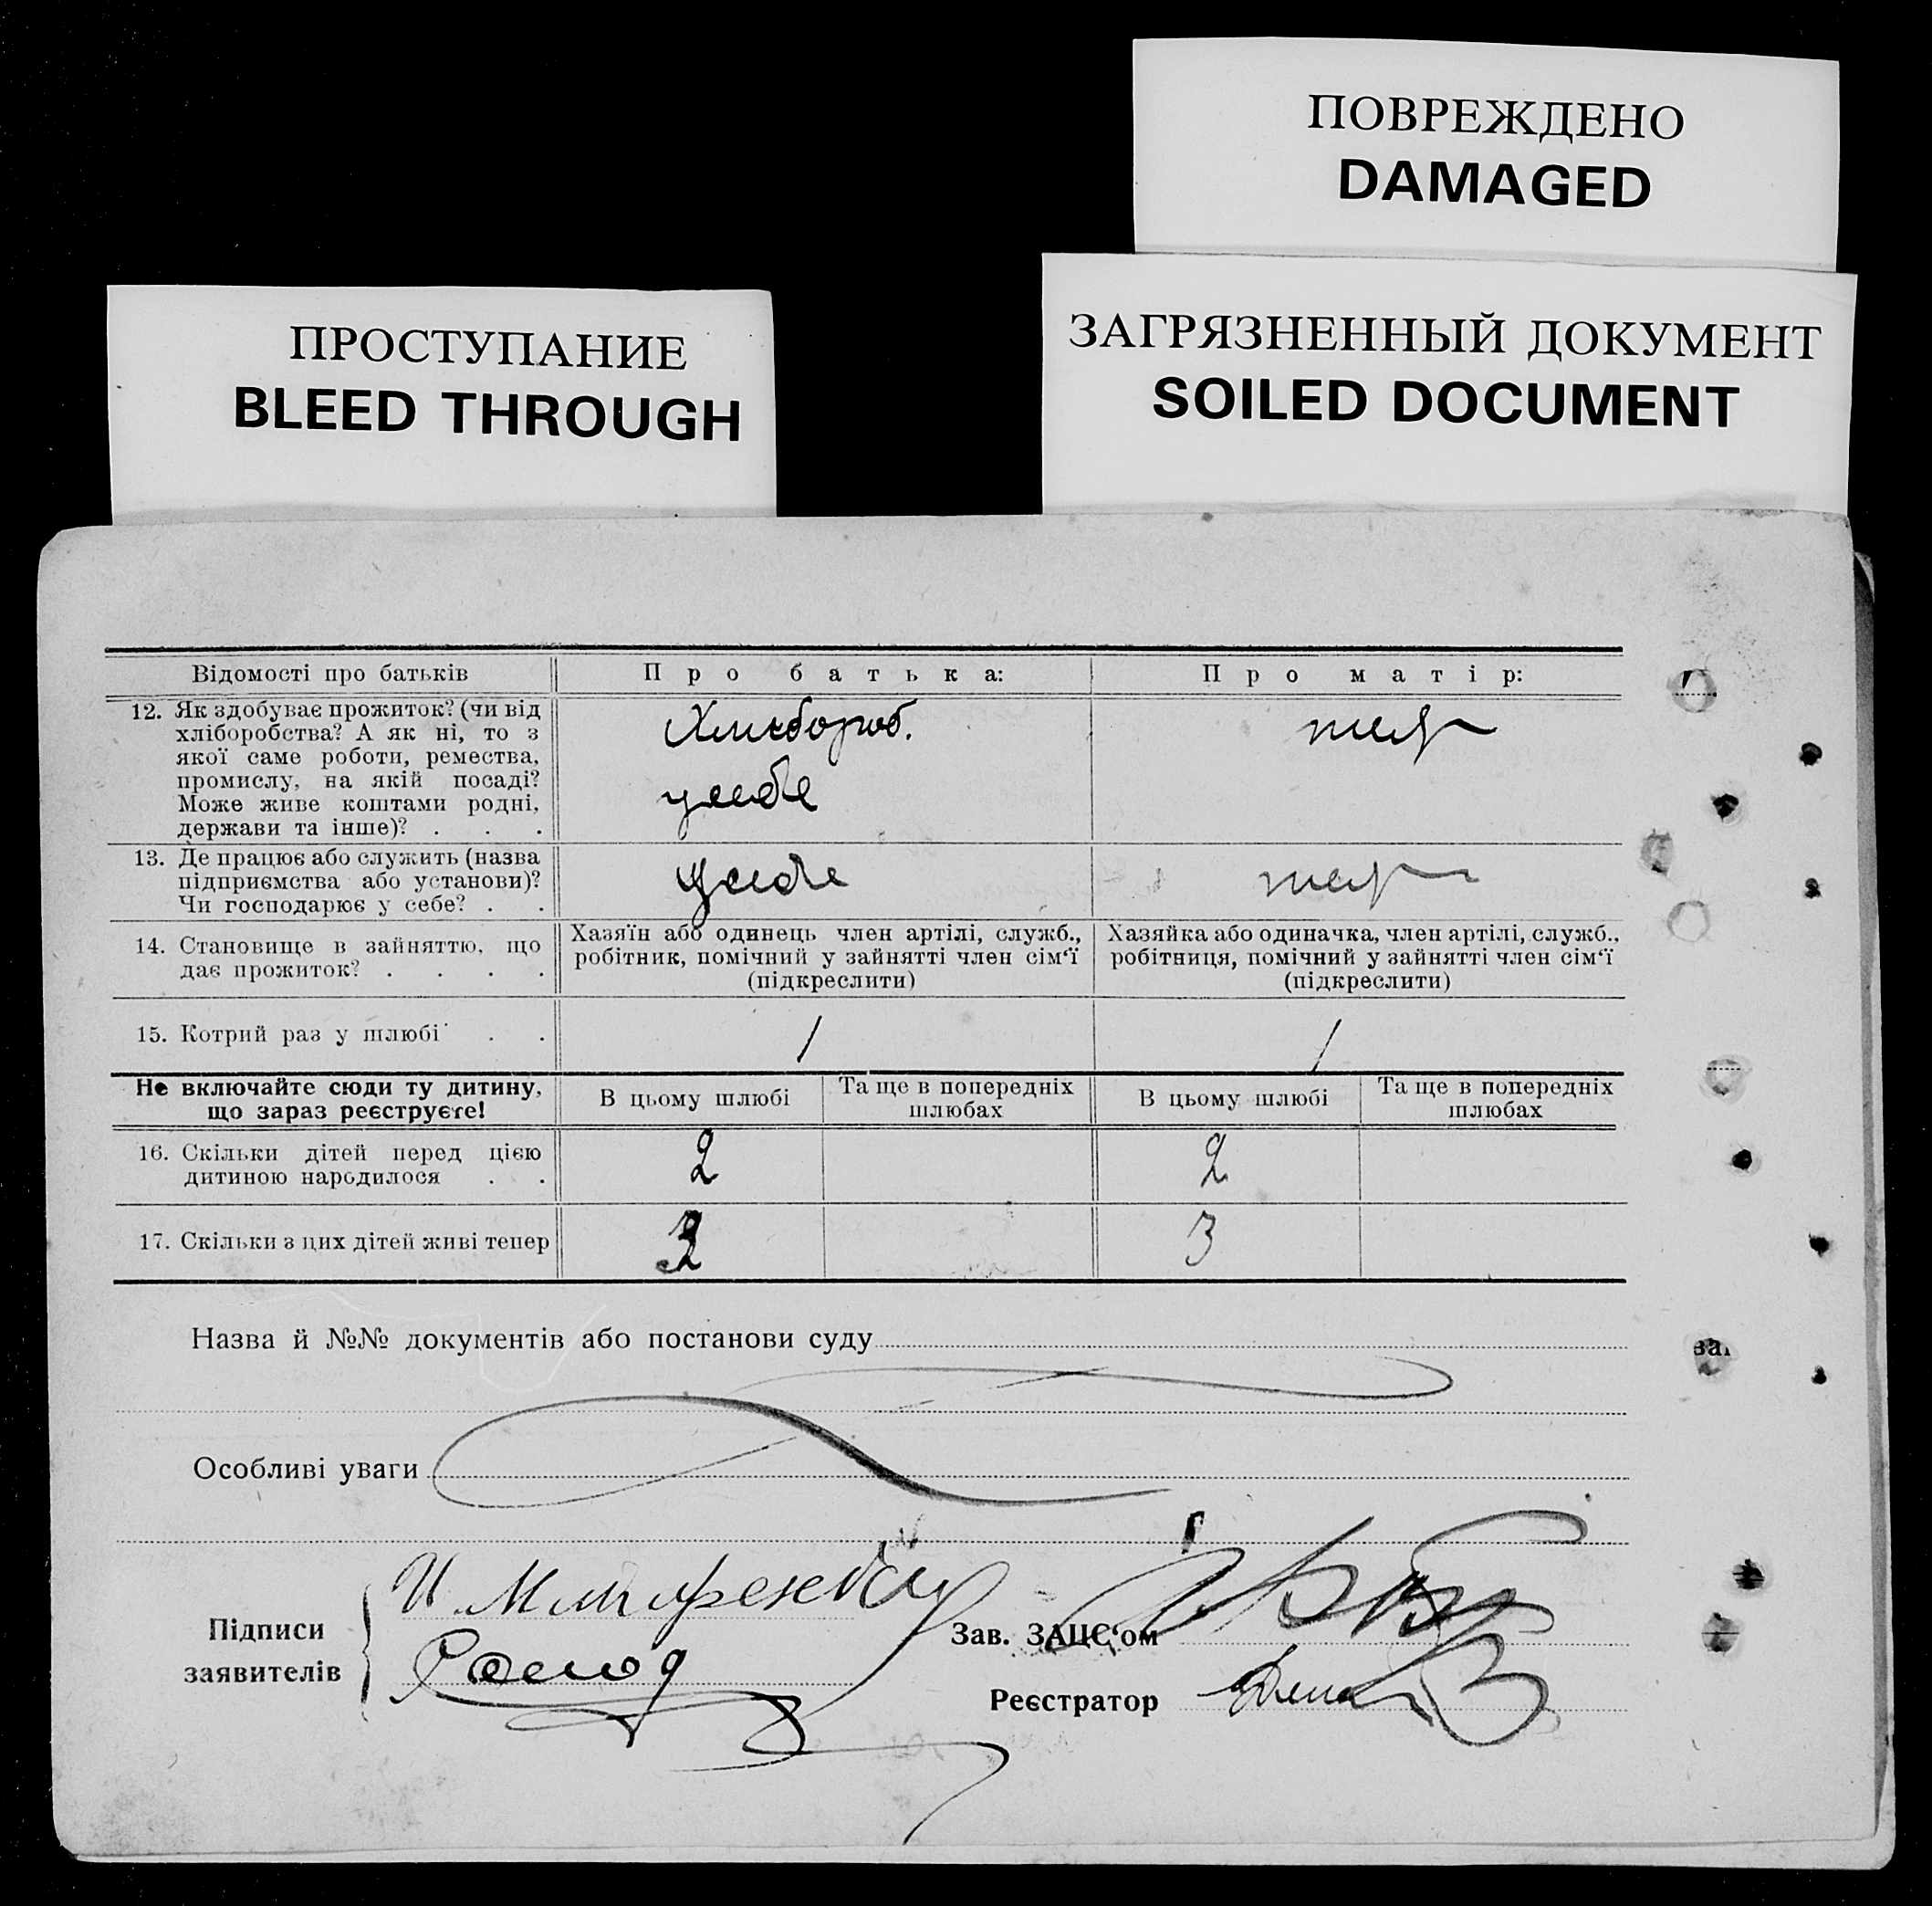 ПОВРЕЖДЕНО
DAMAGED
ПРОСТУПАНИЕ
BLEED THROUGH
ЗАГРЯЗНЕННЫЙ ДОКУМЕНТ
SOILED DOCUMENT
Відомості про батьків
Про батька:
Про матір:
12. Як здобуває прожиток? (чи від
хліборобства? А як ні, то з
якої саме роботи, ремества,
промислу, на якій посаді?
Може живе коштами родні,
держави та інше)? . . .
у себе
13. Де працює або служить (назва
підприємства або установи)?
Чи господарює у себе? . .
у себе
14. Становище в зайняттю, що
дає прожиток? . . . .
Хазяїн або одинець член артілі, служб.,
робітник, помічний у зайнятті член сім‘ї
(підкреслити)
Хазяйка або одиначка, член артілі, служб.,
робітниця, помічний у зайнятті член сім‘ї
(підкреслити)
15. Котрий раз у шлюбі . .
1
1
Не включайте сюди ту дитину,
що зараз реєструєте!
В цьому шлюбі
Та ще в попередніх
шлюбах
В цьому шлюбі
Та ще в попередніх
шлюбах
16. Скільки дітей перед цією
дитиною народилося . .
2
2
17. Скільки з цих дітей живі тепер
3
Назва й №№ документів або постанови суду
Особливі уваги
Підписи
заявителів
Зав. ЗАЦС‘ом
Реєстратор